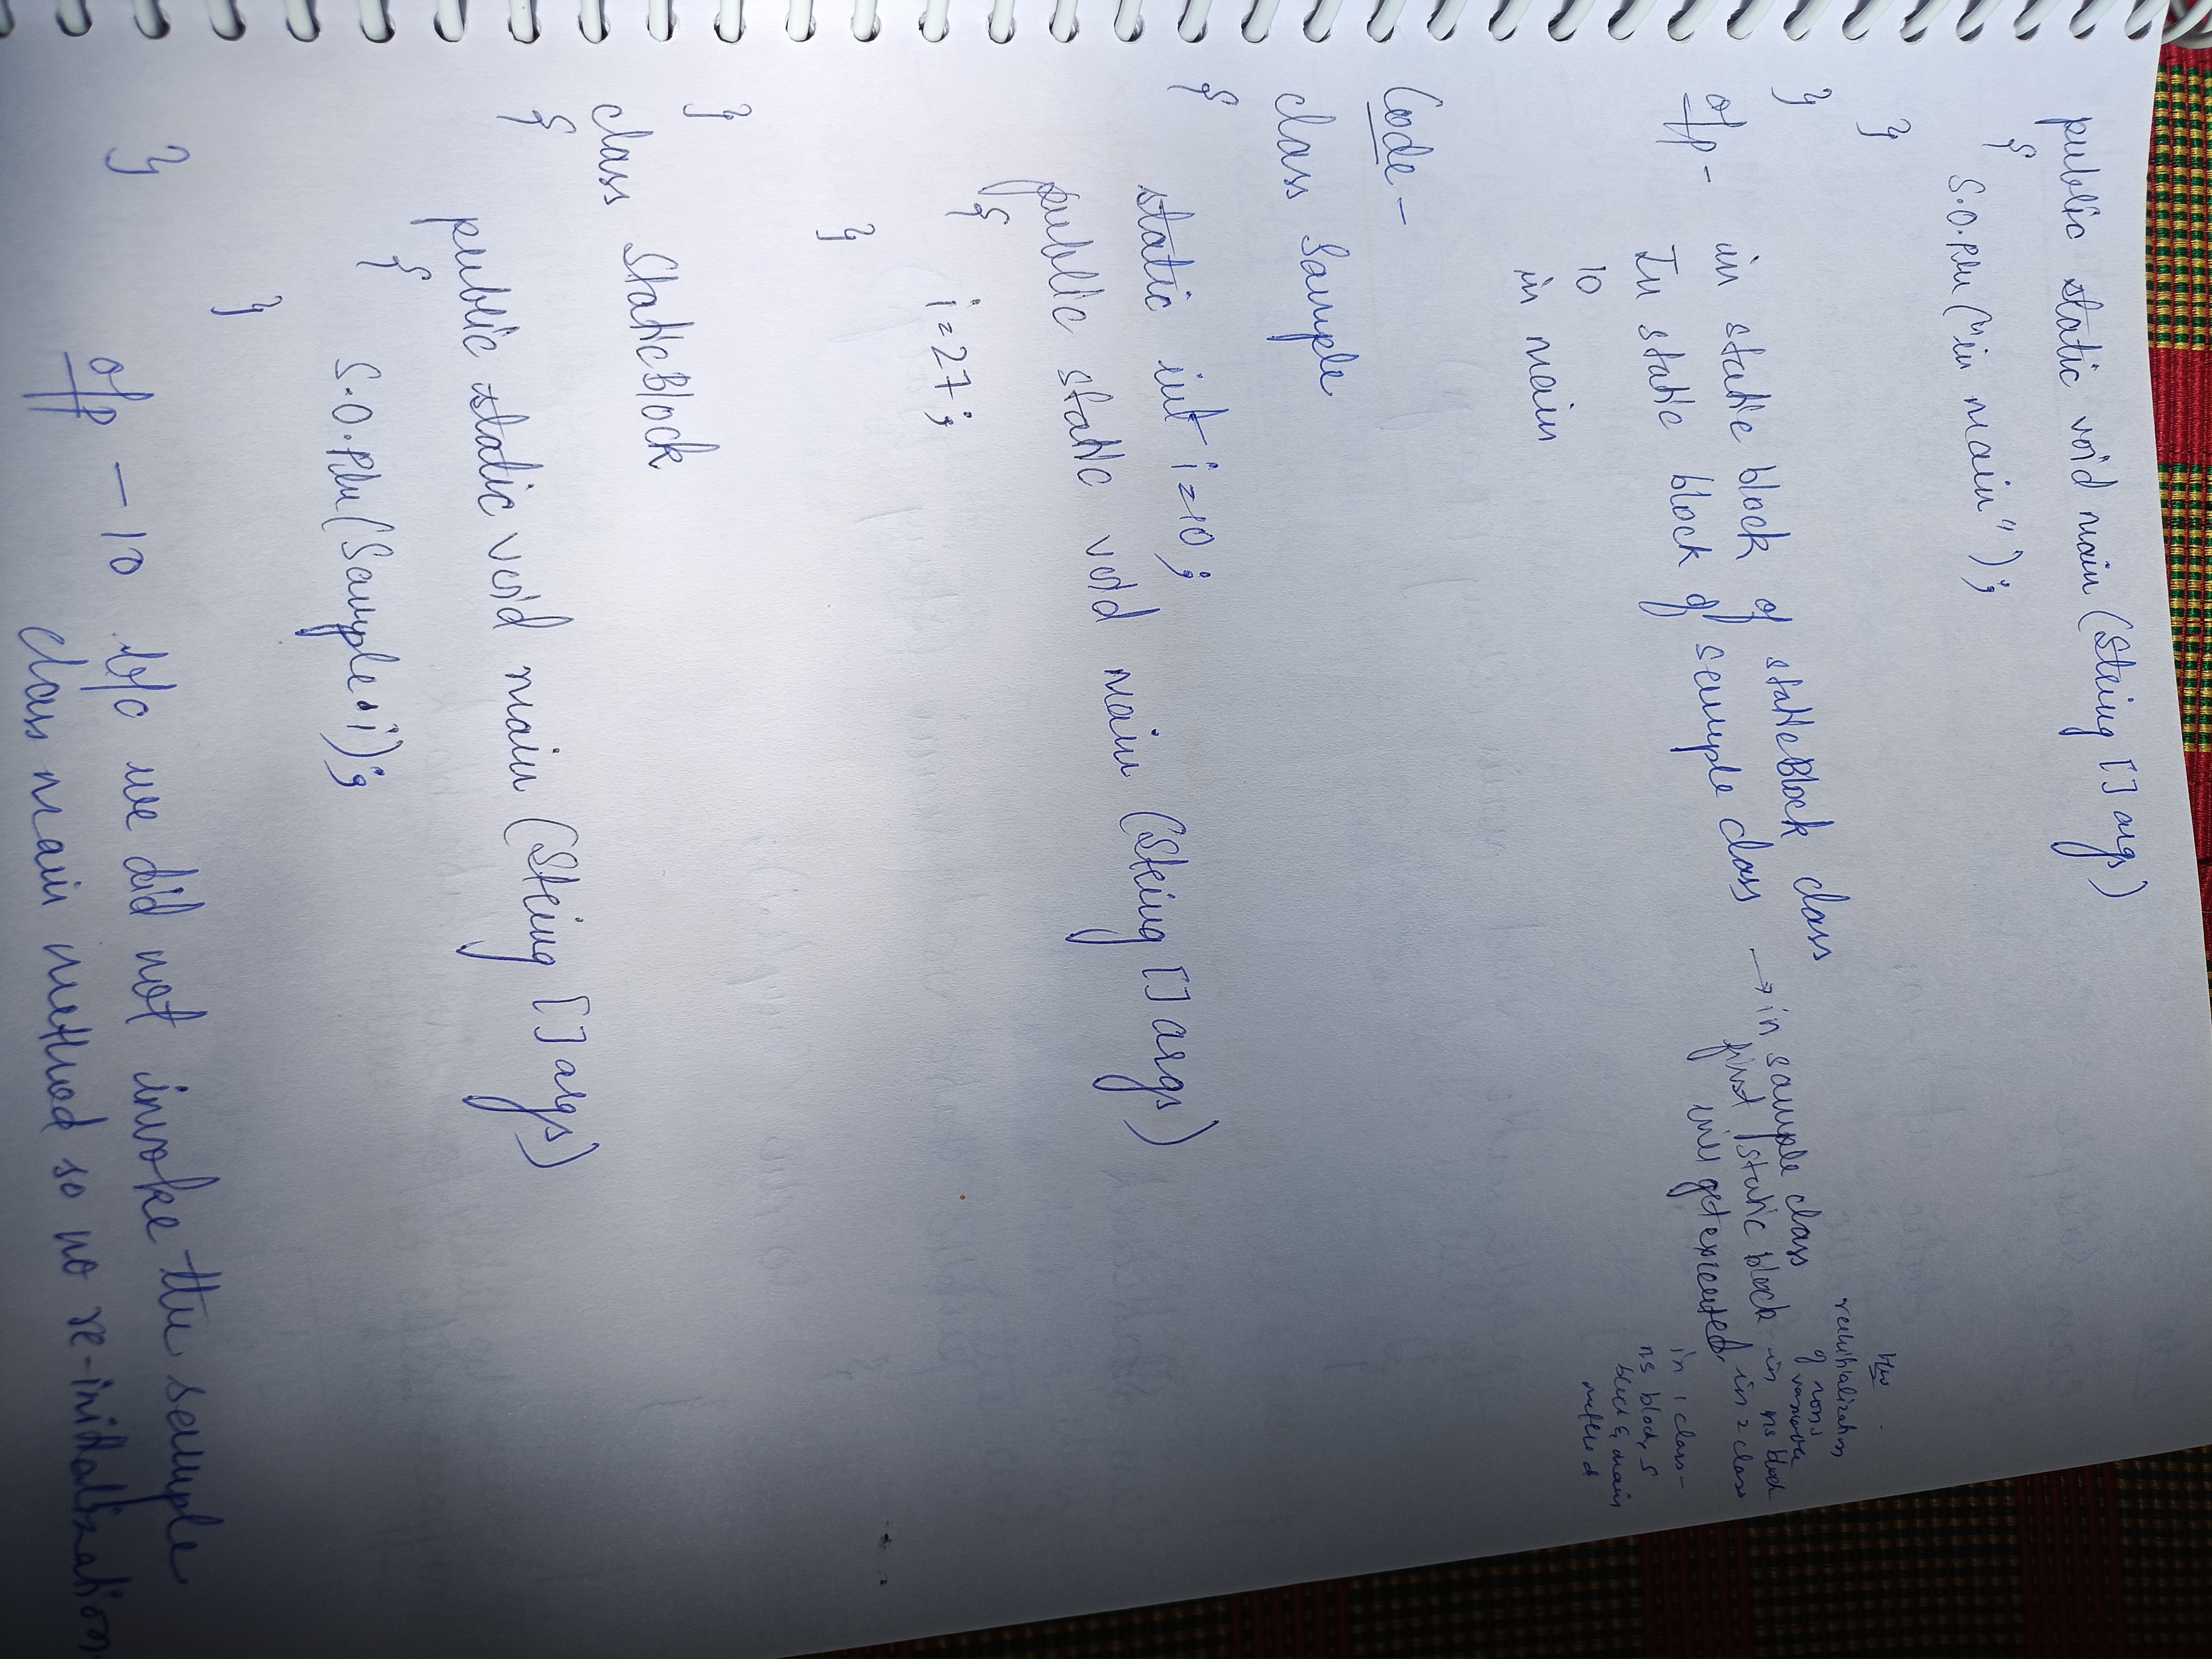 public static void main (String [] args)
{
S.O.Pln ("in main");
}
}
o/p - in static block of staticBlock class
In static block of sample class → in sample class
first static block
will get executed
10
in main
H/w
reinitialization
of nons
variable
in ns block
in 2 class
in 1 class -
ns block, s
block & main
method
Code -
class Sample
{
static int i = 10;
public static void main (String [] args)
{
i = 27;
}
}
class StaticBlock
{
public static void main (String [] args)
{
S.O.Pln (Sample.i);
}
}
o/p - 10 b/c we did not invoke the sample
class main method so no re-initialization